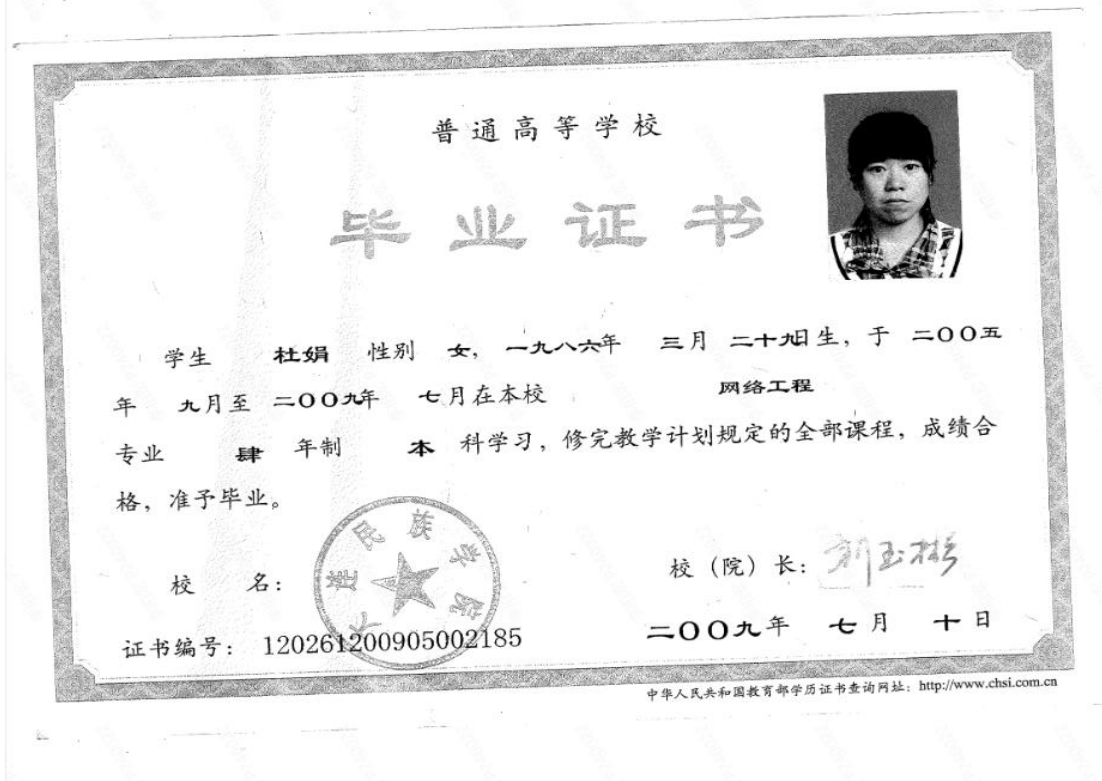 普通高等学校
毕业证书
学生 杜娟 性别 女，一九八六年 三月 二十九日生，于 二〇〇五
年 九月至 二〇〇九年 七月在本校 网络工程
专业 肆 年制 本 科学习，修完教学计划规定的全部课程，成绩合
格，准予毕业。
大连民族学院
校 名：
校（院）长：
证书编号： 120261200905002185
二〇〇九年 七月 十日
中华人民共和国教育部学历证书查询网址：http://www.chsi.com.cn